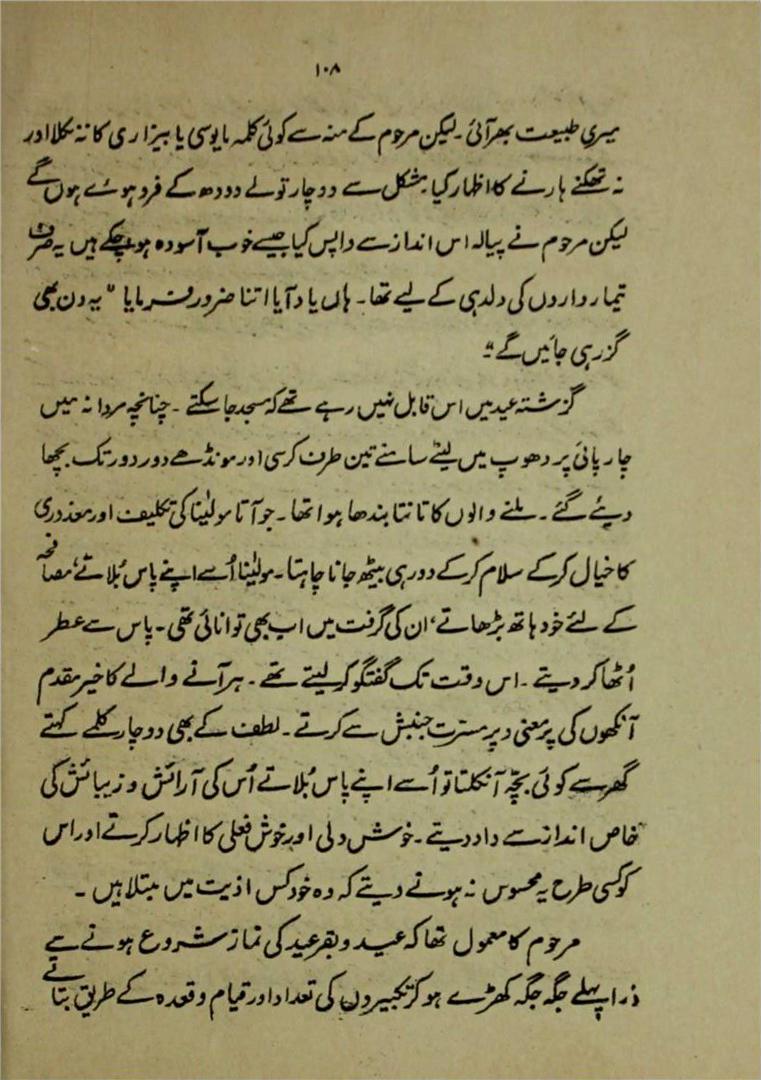 ۱۰۸
میری طبیعت بھر آئی ۔ لیکن مرحوم کے منہ سے کوئی کلمہ مایوسی یا بیزاری کا نہ نکلا اور
نہ تھکنے ہارنے کا اظہار کیا ۔ مشکل سے دو چار تولے دودھ کے فرو ہوئے ہوں گے
لیکن مرحوم نے پیالہ اس انداز سے واپس کیا جیسے خوب آسودہ ہو چکے ہیں یہ صرف
تیمارداروں کی دلدہی کے لیے تھا ۔ ہاں یاد آیا اتنا ضرور فرمایا " یہ دن بھی
گزر ہی جائیں گے "
گزشتہ عید میں اس قابل نہیں رہے تھے کہ مسجد جا سکتے ۔ چنانچہ مردانہ میں
چارپائی پر دھوپ میں لیٹے سامنے تین طرف کرسی اور مونڈھے دور دور تک بچھا
دیئے گئے ۔ ملنے والوں کا تانتا بندھا ہوا تھا ۔ جو آتا مولیٰنا کی تکلیف اور معذوری
کا خیال کر کے سلام کر کے دور ہی بیٹھ جانا چاہتا ۔ مولیٰنا اُسے اپنے پاس بُلاتے، مصافحہ
کے لئے خود ہاتھ بڑھاتے، ان کی گرفت میں اب بھی توانائی تھی ۔ پاس سے عطر
اُٹھا کر دیتے ۔ اس وقت تک گفتگو کر لیتے تھے ۔ ہر آنے والے کا خیر مقدم
آنکھوں کی پر معنی و پر مسرت جنبش سے کرتے ۔ لطف کے بھی دو چار کلمے کہتے
گھر سے کوئی بچّہ آ نکلتا تو اُسے اپنے پاس بُلاتے اُس کی آرائش و زیبائش کی
خاص انداز سے داد دیتے ۔ خوش دلی اور خوش فعلی کا اظہار کرتے اور اس
کو کسی طرح یہ محسوس نہ ہونے دیتے کہ وہ خود کس اذیت میں مبتلا ہیں ۔
مرحوم کا معمول تھا کہ عید و بقرعید کی نماز شروع ہونے سے
ذرا پہلے جگہ جگہ کھڑے ہو کر تکبیروں کی تعداد اور قیام و قعدہ کے طریق بتاتے